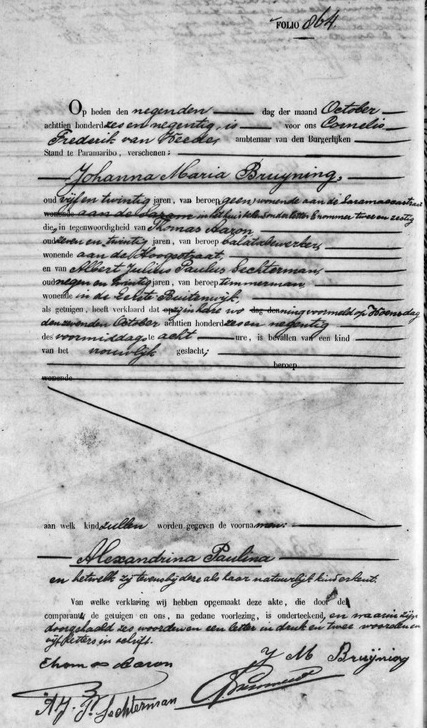 FOLIO 864
Op heden den negenden dag der maand October
achttien honderd zes en negentig, is voor ons Cornelis
Frederik van ambtenaar van den Burgerlijken
Stand te Paramaribo, verschenen:
Johanna Maria Bruyning,
oud vijf en twintig jaren, van beroep geen wonende aan de Saramaccastraat
wonende aan de in het huis letter nommer twee en zestig
die, in tegenwoordigheid van Thomas
oud zeven en twintig jaren, van beroep balatabewerker,
wonende aan de Hoogestraat,
en van Albert Julius Paulus Sechterman,
oud negen en twintig jaren, van beroep timmerman,
wonende in de Eerste Buitenwijk,
als getuigen, heeft verklaard dat zij in hare woning voormeld op Woensdag
den October achttien honderd zes en negentig
des voormiddag te acht ure, is bevallen van een kind
van het vrouwlijk geslacht,
beroep
wonende
aan welk kind zullen worden gegeven de voornamen:
Alexandrina Paulina
en hetwelk zij tevens bij deze als haar natuurlijk kind erkent.
Van welke verklaring wij hebben opgemaakt deze akte, die door de
comparante, de getuigen en ons, na gedane voorlezing, is onderteekend, en waarin zijn
doorgehaald zes woorden en een letter in druk en twee woorden en
vijf letters in schrift.
J M Bruijning
A. J. P. Sechterman